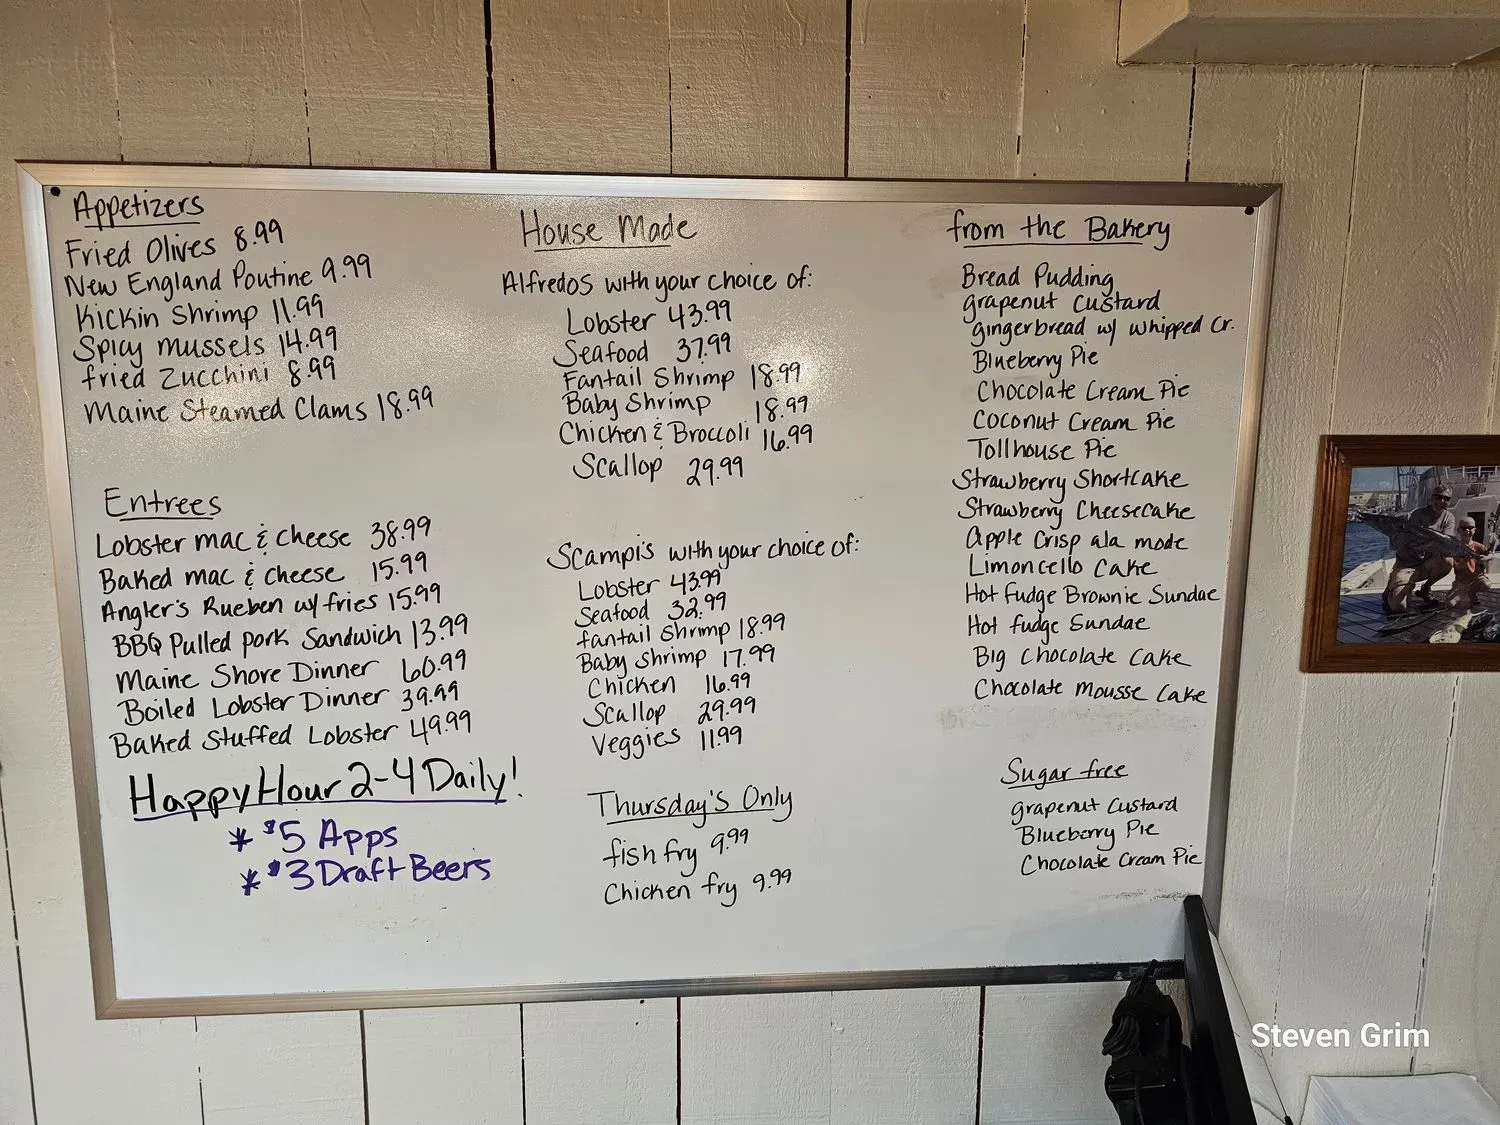 Appetizers
Fried Olives 8.99
New England Poutine 9.99
Kickin Shrimp 11.99
Spicy mussels 14.99
fried Zucchini 8.99
Maine Steamed Clams 18.99
Entrees
Lobster mac & cheese 38.99
Baked mac & cheese 15.99
Angler's Rueben w/ fries 15.99
BBQ Pulled pork Sandwich 13.99
Maine Shore Dinner 60.99
Boiled Lobster Dinner 39.99
Baked Stuffed Lobster 49.99
Happy Hour 2-4 Daily!
* $5 Apps
* $3 Draft Beers
House Made
Alfredos with your choice of:
Lobster 43.99
Seafood 37.99
Fantail Shrimp 18.99
Baby Shrimp 18.99
Chicken & Broccoli 16.99
Scallop 29.99
Scampi's with your choice of:
Lobster 43.99
Seafood 32.99
fantail shrimp 18.99
Baby Shrimp 17.99
Chicken 16.99
Scallop 29.99
Veggies 11.99
Thursday's Only
fish fry 9.99
Chicken fry 9.99
from the Bakery
Bread Pudding
grapenut custard
gingerbread w/ whipped Cr.
Blueberry Pie
Chocolate Cream Pie
Coconut Cream Pie
Tollhouse Pie
Strawberry Shortcake
Strawberry Cheesecake
Apple Crisp ala mode
Limoncello Cake
Hot fudge Brownie Sundae
Hot fudge Sundae
Big Chocolate Cake
Chocolate mousse Cake
Sugar free
grapenut Custard
Blueberry Pie
Chocolate Cream Pie
Steven Grim